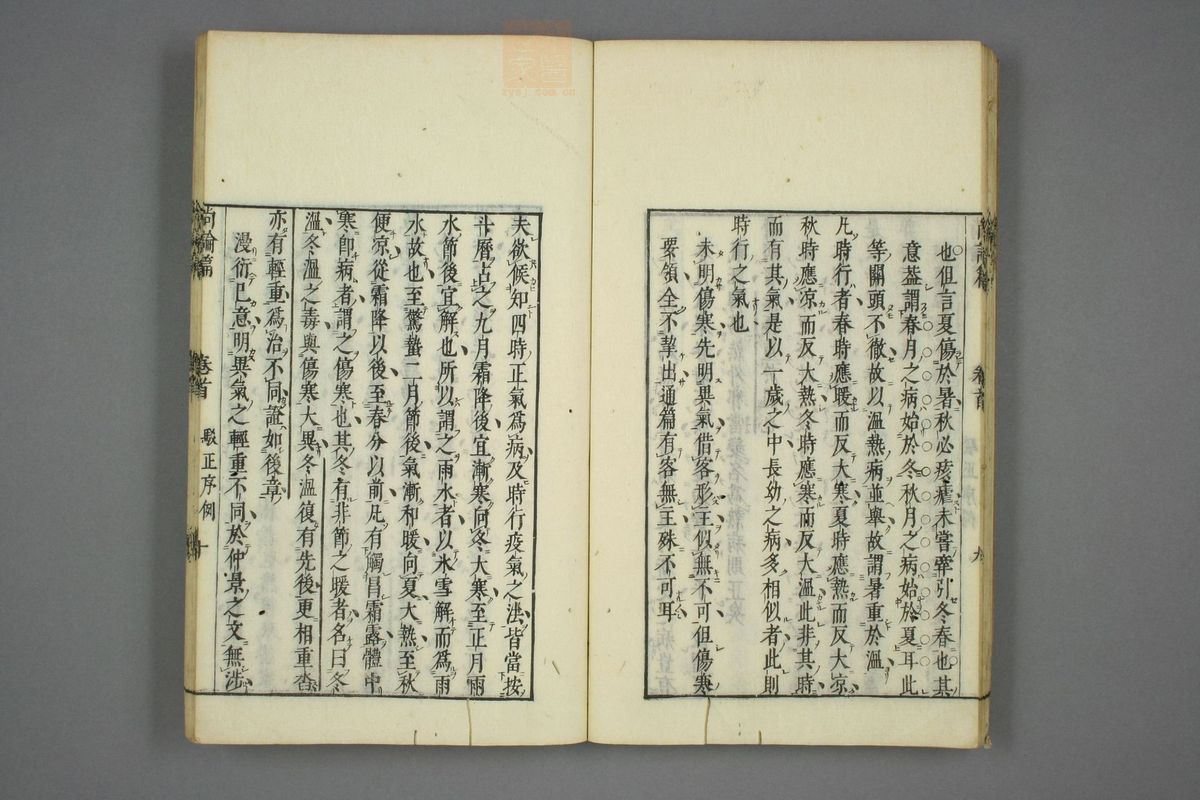 也但言夏傷於暑秋必痎瘧未嘗牽引冬春也其
意葢謂春月之病始於冬秋月之病始於夏耳此
等關頭不徹故以溫熱病並舉故謂暑重於溫
凡時行者春時應暖而反大寒夏時應熱而反大凉
秋時應凉而反大熱冬時應寒而反大溫此非其時
而有其氣是以一歲之中長幼之病多相似者此則
時行之氣也
未明傷寒先明異氣借客形主似無不可但傷寒
要領全不挈出通篇有客無主殊不可耳
夫欲候知四時正氣爲病及時行疫氣之法皆當按
斗曆占之九月霜降後宜漸寒向冬大寒至正月雨
水節後宜解也所以謂之雨水者以氷雪解而爲雨
水故也至驚蟄二月節後氣漸和暖向夏大熱至秋
便凉從霜降以後至春分以前凡有觸冒霜露體中
寒卽病者謂之傷寒也其冬有非節之暖者名曰冬
溫冬溫之毒與傷寒大異冬溫復有先後更相重沓
亦有輕重爲治不同證如後章
漫衍已意明異氣之輕重不同於仲景之文無涉
尚論篇
卷首
駁正序例
十
卷首
九